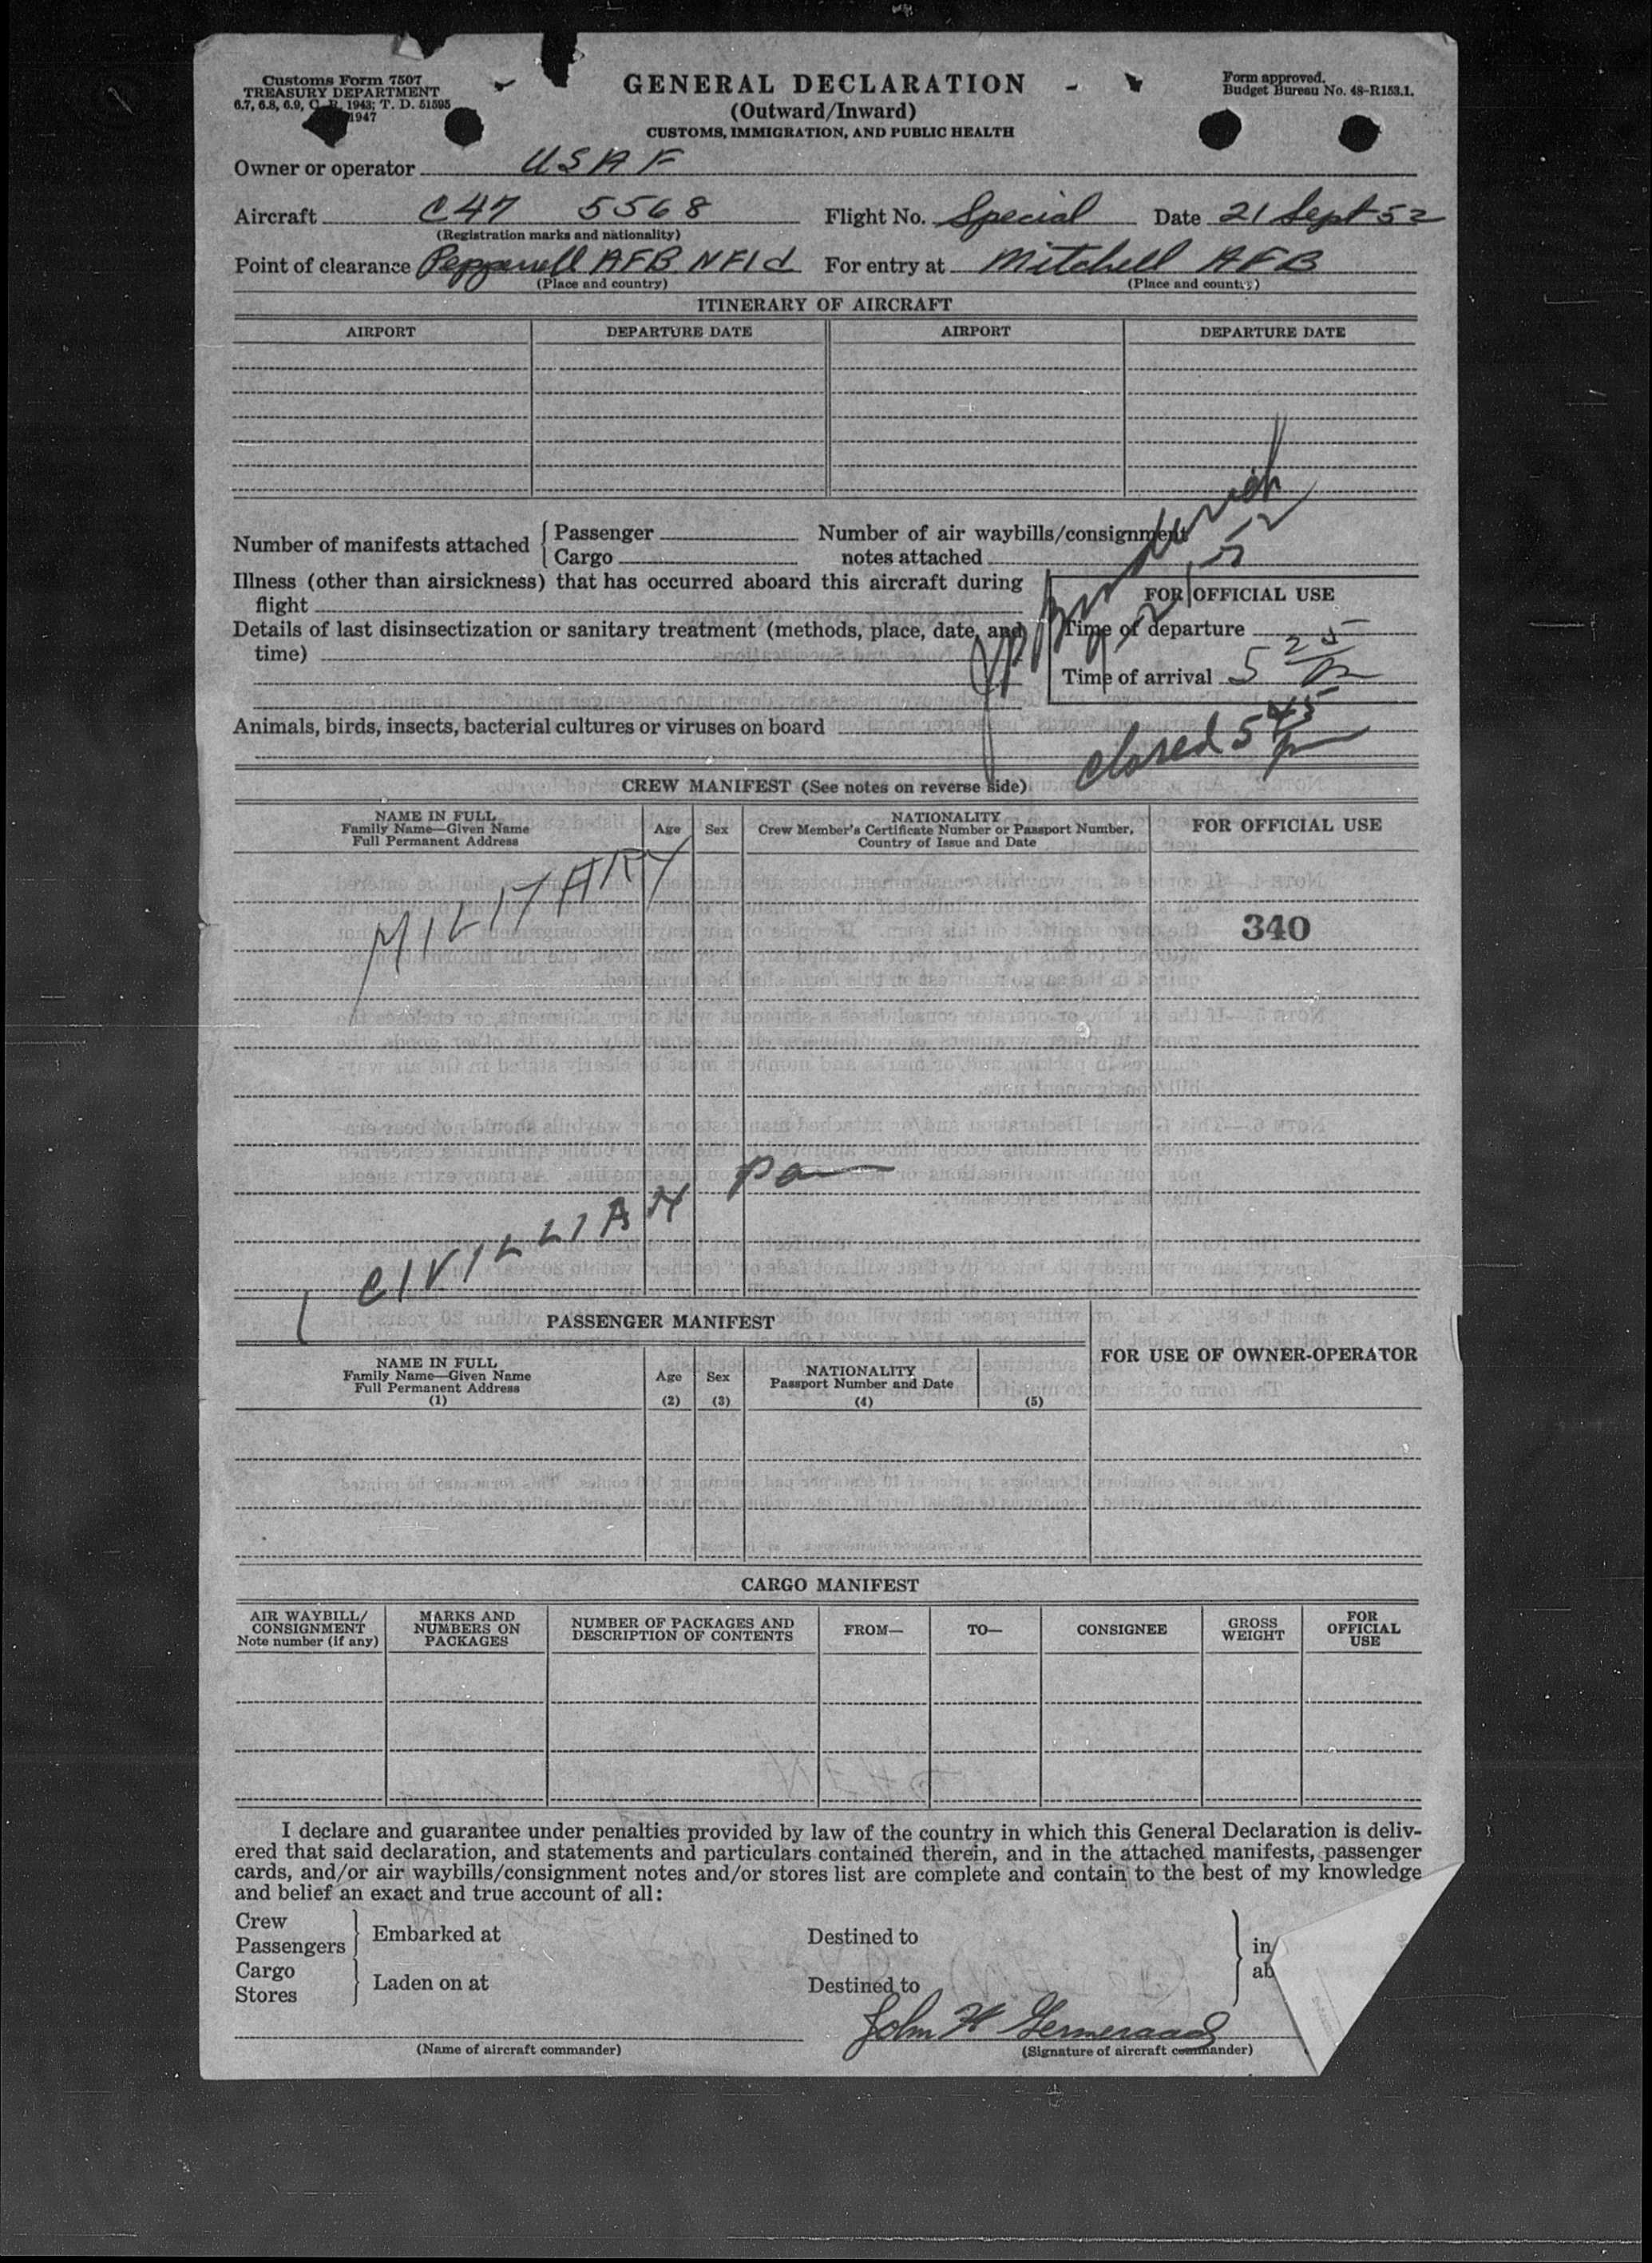 Customs Form 7507
TREASURY DEPARTMENT
6.7, 6.8, 6.9, C. R. 1943; T. D. 51595
1947
GENERAL DECLARATION
(Outward/Inward)
CUSTOMS, IMMIGRATION, AND PUBLIC HEALTH
Form approved.
Budget Bureau No. 48-R153.1.
Owner or operator USAF
Aircraft C47 5568 Flight No. Special Date 21 Sept 52
(Registration marks and nationality)
Point of clearance Pepperrell AFB NFld For entry at Mitchell AFB
(Place and country) (Place and country)
ITINERARY OF AIRCRAFT
AIRPORT DEPARTURE DATE AIRPORT DEPARTURE DATE
Number of manifests attached { Passenger
Cargo
Number of air waybills/consignment
notes attached
Illness (other than airsickness) that has occurred aboard this aircraft during
flight
Details of last disinsectization or sanitary treatment (methods, place, date, and
time)
FOR OFFICIAL USE
Time of departure
Time of arrival 5 25 p
9/21/52
Animals, birds, insects, bacterial cultures or viruses on board
closed 5 45 p
CREW MANIFEST (See notes on reverse side)
NAME IN FULL
Family Name—Given Name
Full Permanent Address
Age Sex
NATIONALITY
Crew Member's Certificate Number or Passport Number,
Country of Issue and Date
FOR OFFICIAL USE
MILITARY
340
1 CIVILLIAN Pa
PASSENGER MANIFEST
NAME IN FULL
Family Name—Given Name
Full Permanent Address
(1)
Age
(2)
Sex
(3)
NATIONALITY
Passport Number and Date
(4) (5)
FOR USE OF OWNER-OPERATOR
CARGO MANIFEST
AIR WAYBILL/
CONSIGNMENT
Note number (if any)
MARKS AND
NUMBERS ON
PACKAGES
NUMBER OF PACKAGES AND
DESCRIPTION OF CONTENTS
FROM—
TO—
CONSIGNEE
GROSS
WEIGHT
FOR
OFFICIAL
USE
I declare and guarantee under penalties provided by law of the country in which this General Declaration is deliv-
ered that said declaration, and statements and particulars contained therein, and in the attached manifests, passenger
cards, and/or air waybills/consignment notes and/or stores list are complete and contain to the best of my knowledge
and belief an exact and true account of all:
Crew
Passengers } Embarked at Destined to } in
Cargo
Stores } Laden on at Destined to ab
John H
(Name of aircraft commander) (Signature of aircraft commander)